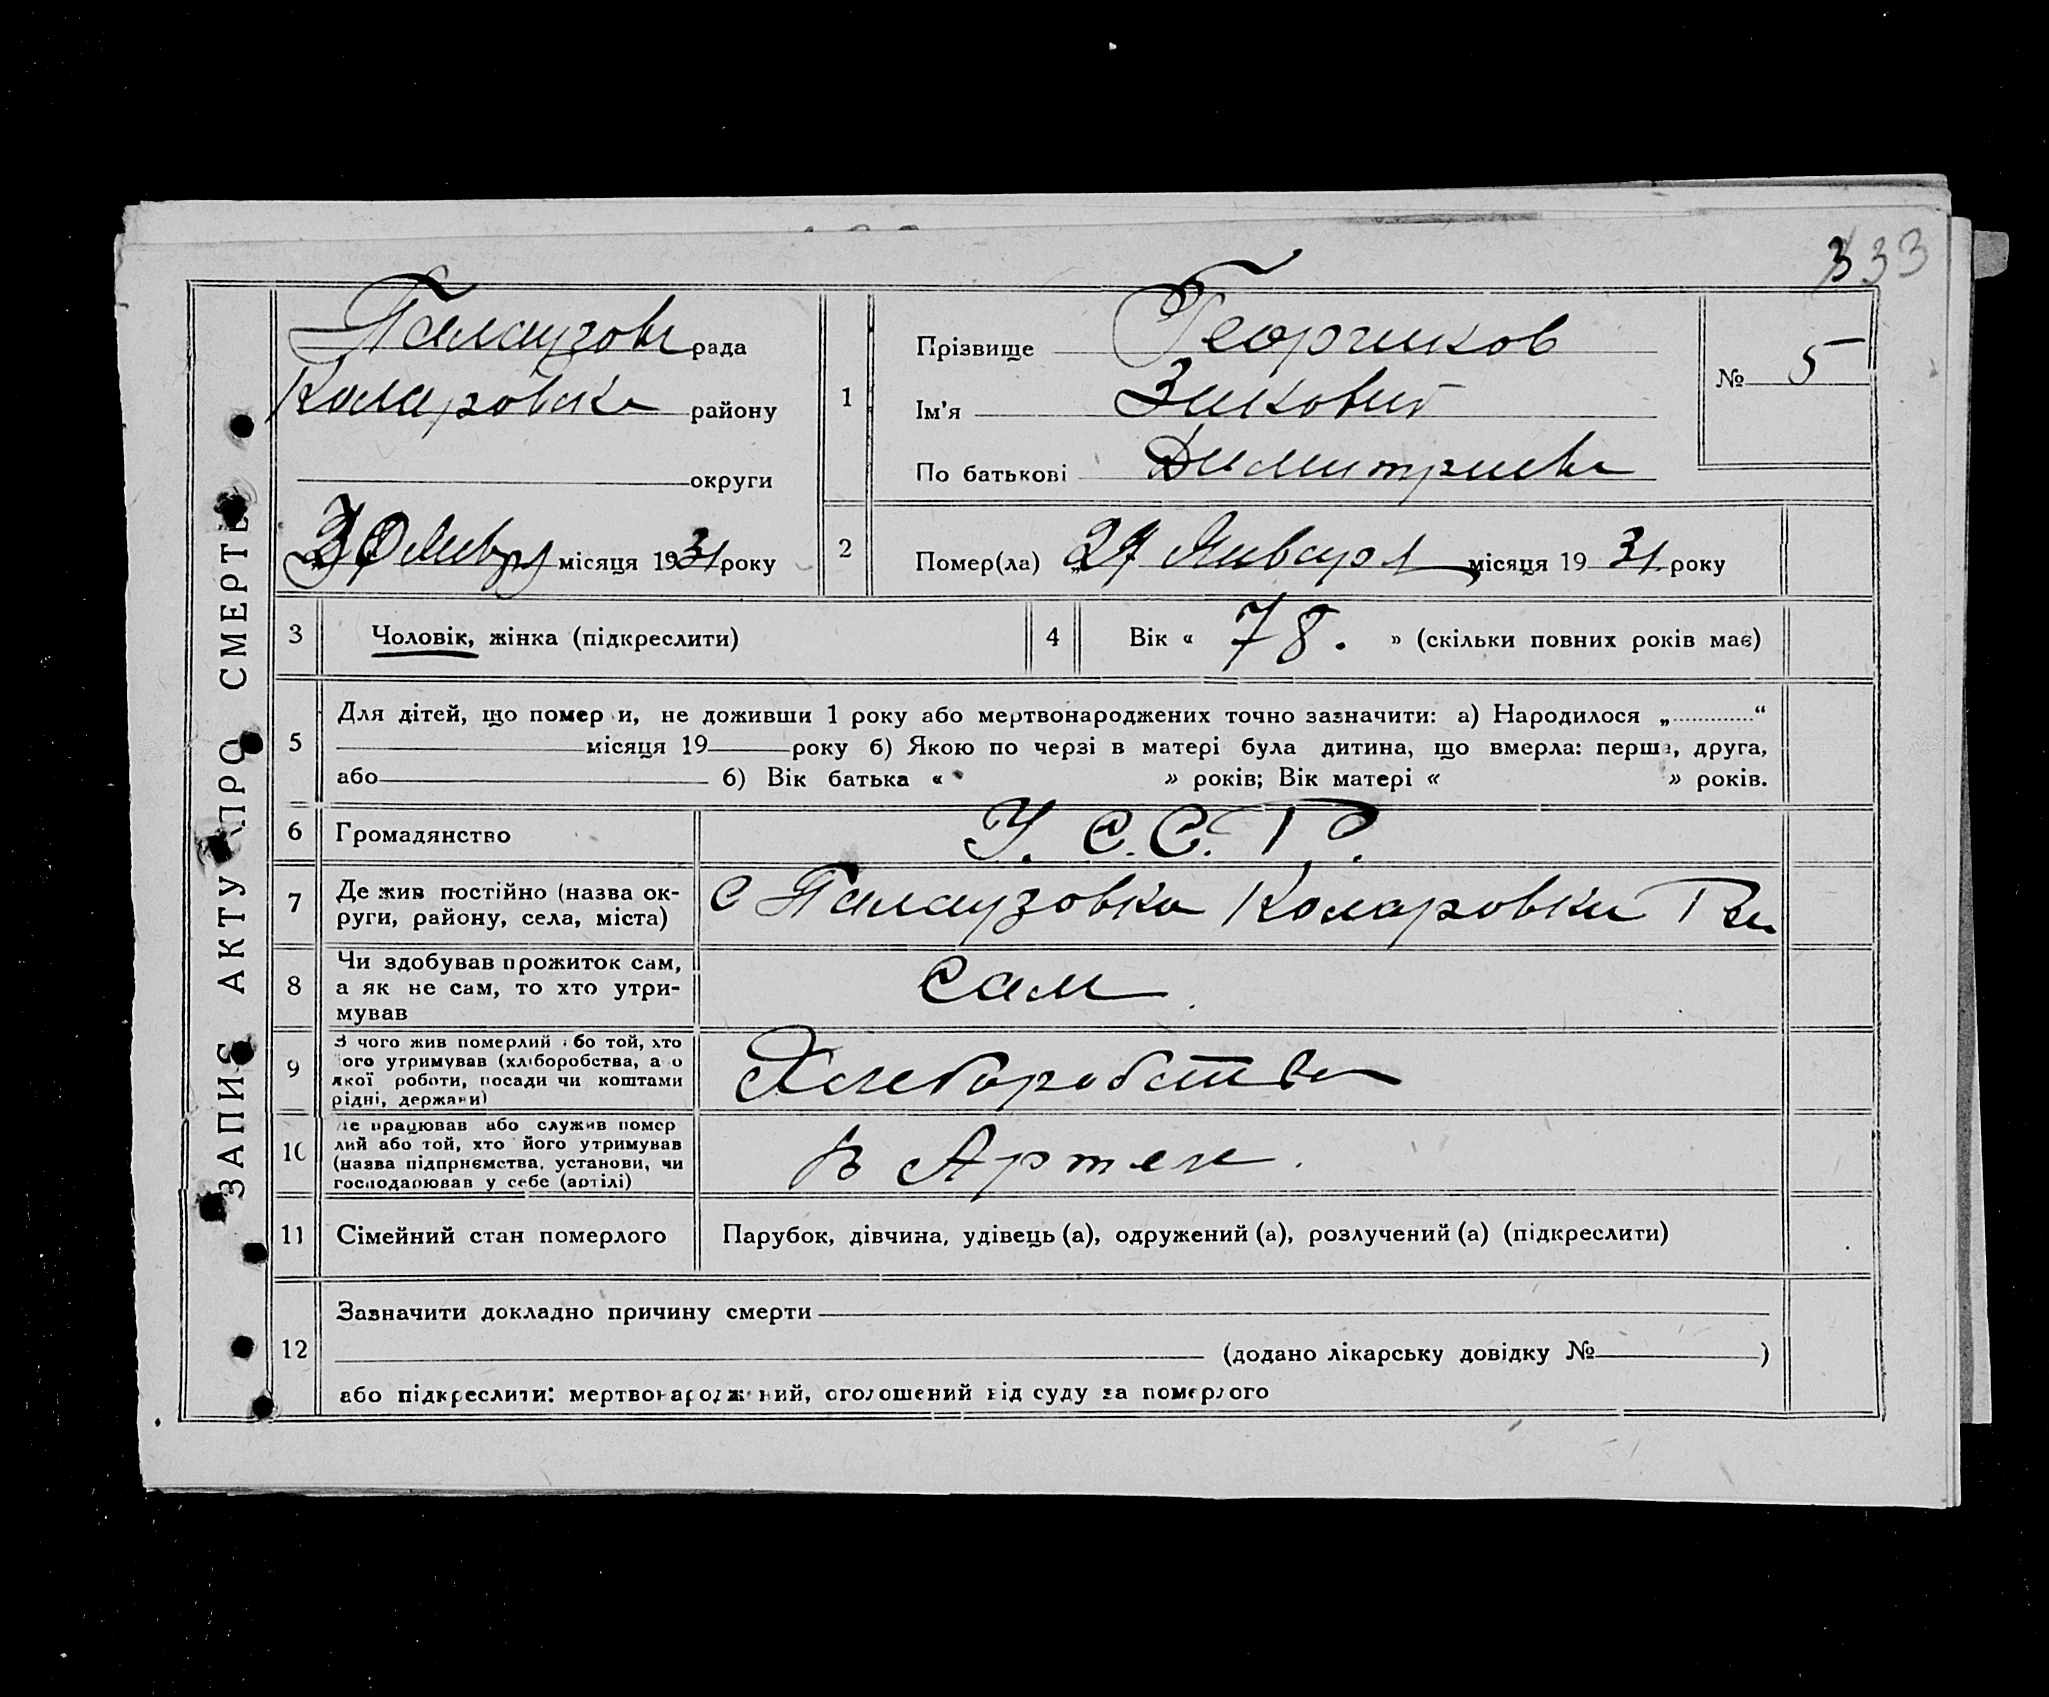 333
Палаузов рада
Коларовске району
округи
30 Январ місяця 1931 року
1
Прізвище Георгиков
Ім'я Зиновий
По батькові Димитриев
№ 5
2
Помер(ла) „29 Января місяця 1931 року
3
Чоловік, жінка (підкреслити)
4
Вік « 78. » (скільки повних років має)
5
Для дітей, що померли, не доживши 1 року або мертвонароджених точно зазначити: а) Народилося „ “
місяця 19 року б) Якою по черзі в матері була дитина, що вмерла: перша, друга,
або 6) Вік батька « » років; Вік матері « » років.
6
Громадянство
У. С. С. Р.
7
Де жив постійно (назва ок-
руги, району, села, міста)
с Палаузовка Коларовки Рн
8
Чи здобував прожиток сам,
а як не сам, то хто утри-
мував
Сам
9
З чого жив померлий або той, хто
його утримував (хліборобства, а о
якої роботи, посади чи коштами
рідні, держави)
Хлеборобства
10
Де працював або служив помер
лий або той, хто його утримував
(назва підприємства, установи, чи
господарював у себе (артілі)
в Артели.
11
Сімейний стан померлого
Парубок, дівчина, удівець (а), одружений (а), розлучений (а) (підкреслити)
12
Зазначити докладно причину смерти
(додано лікарську довідку № )
або підкреслити: мертвонароджений, оголошений від суду за померлого
ЗАПИС АКТУ ПРО СМЕРТЬ